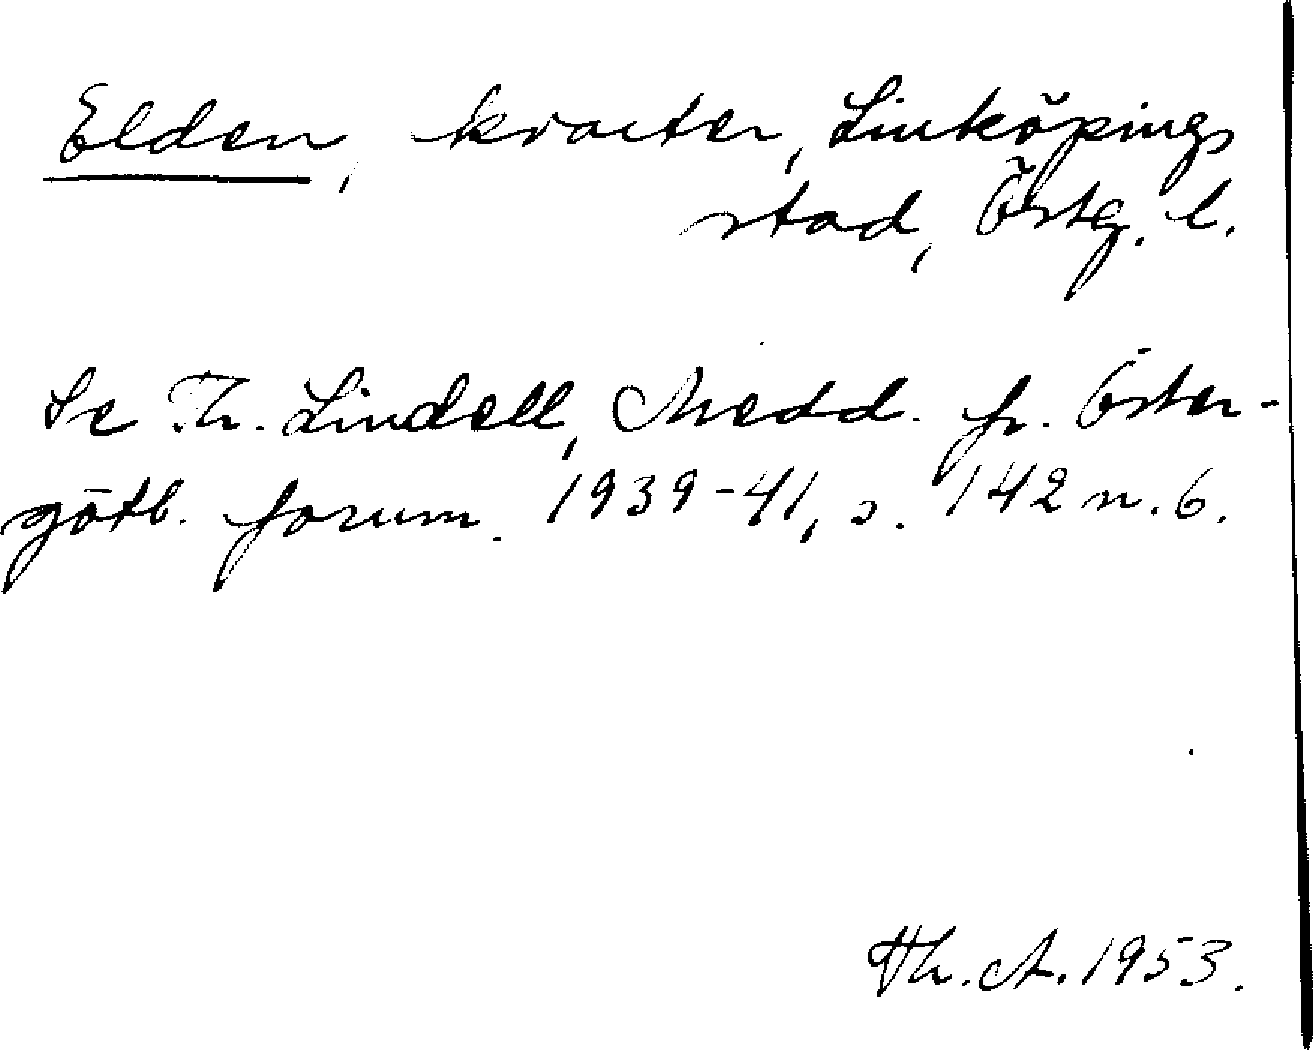 Elden, kvarter, Linköpings
stad, Östg. l.
Se Th. Lindell, Medd. fr. Öster-
götl. forum. 1939-41, s. 142 n. 6.
Th. A. 1953.